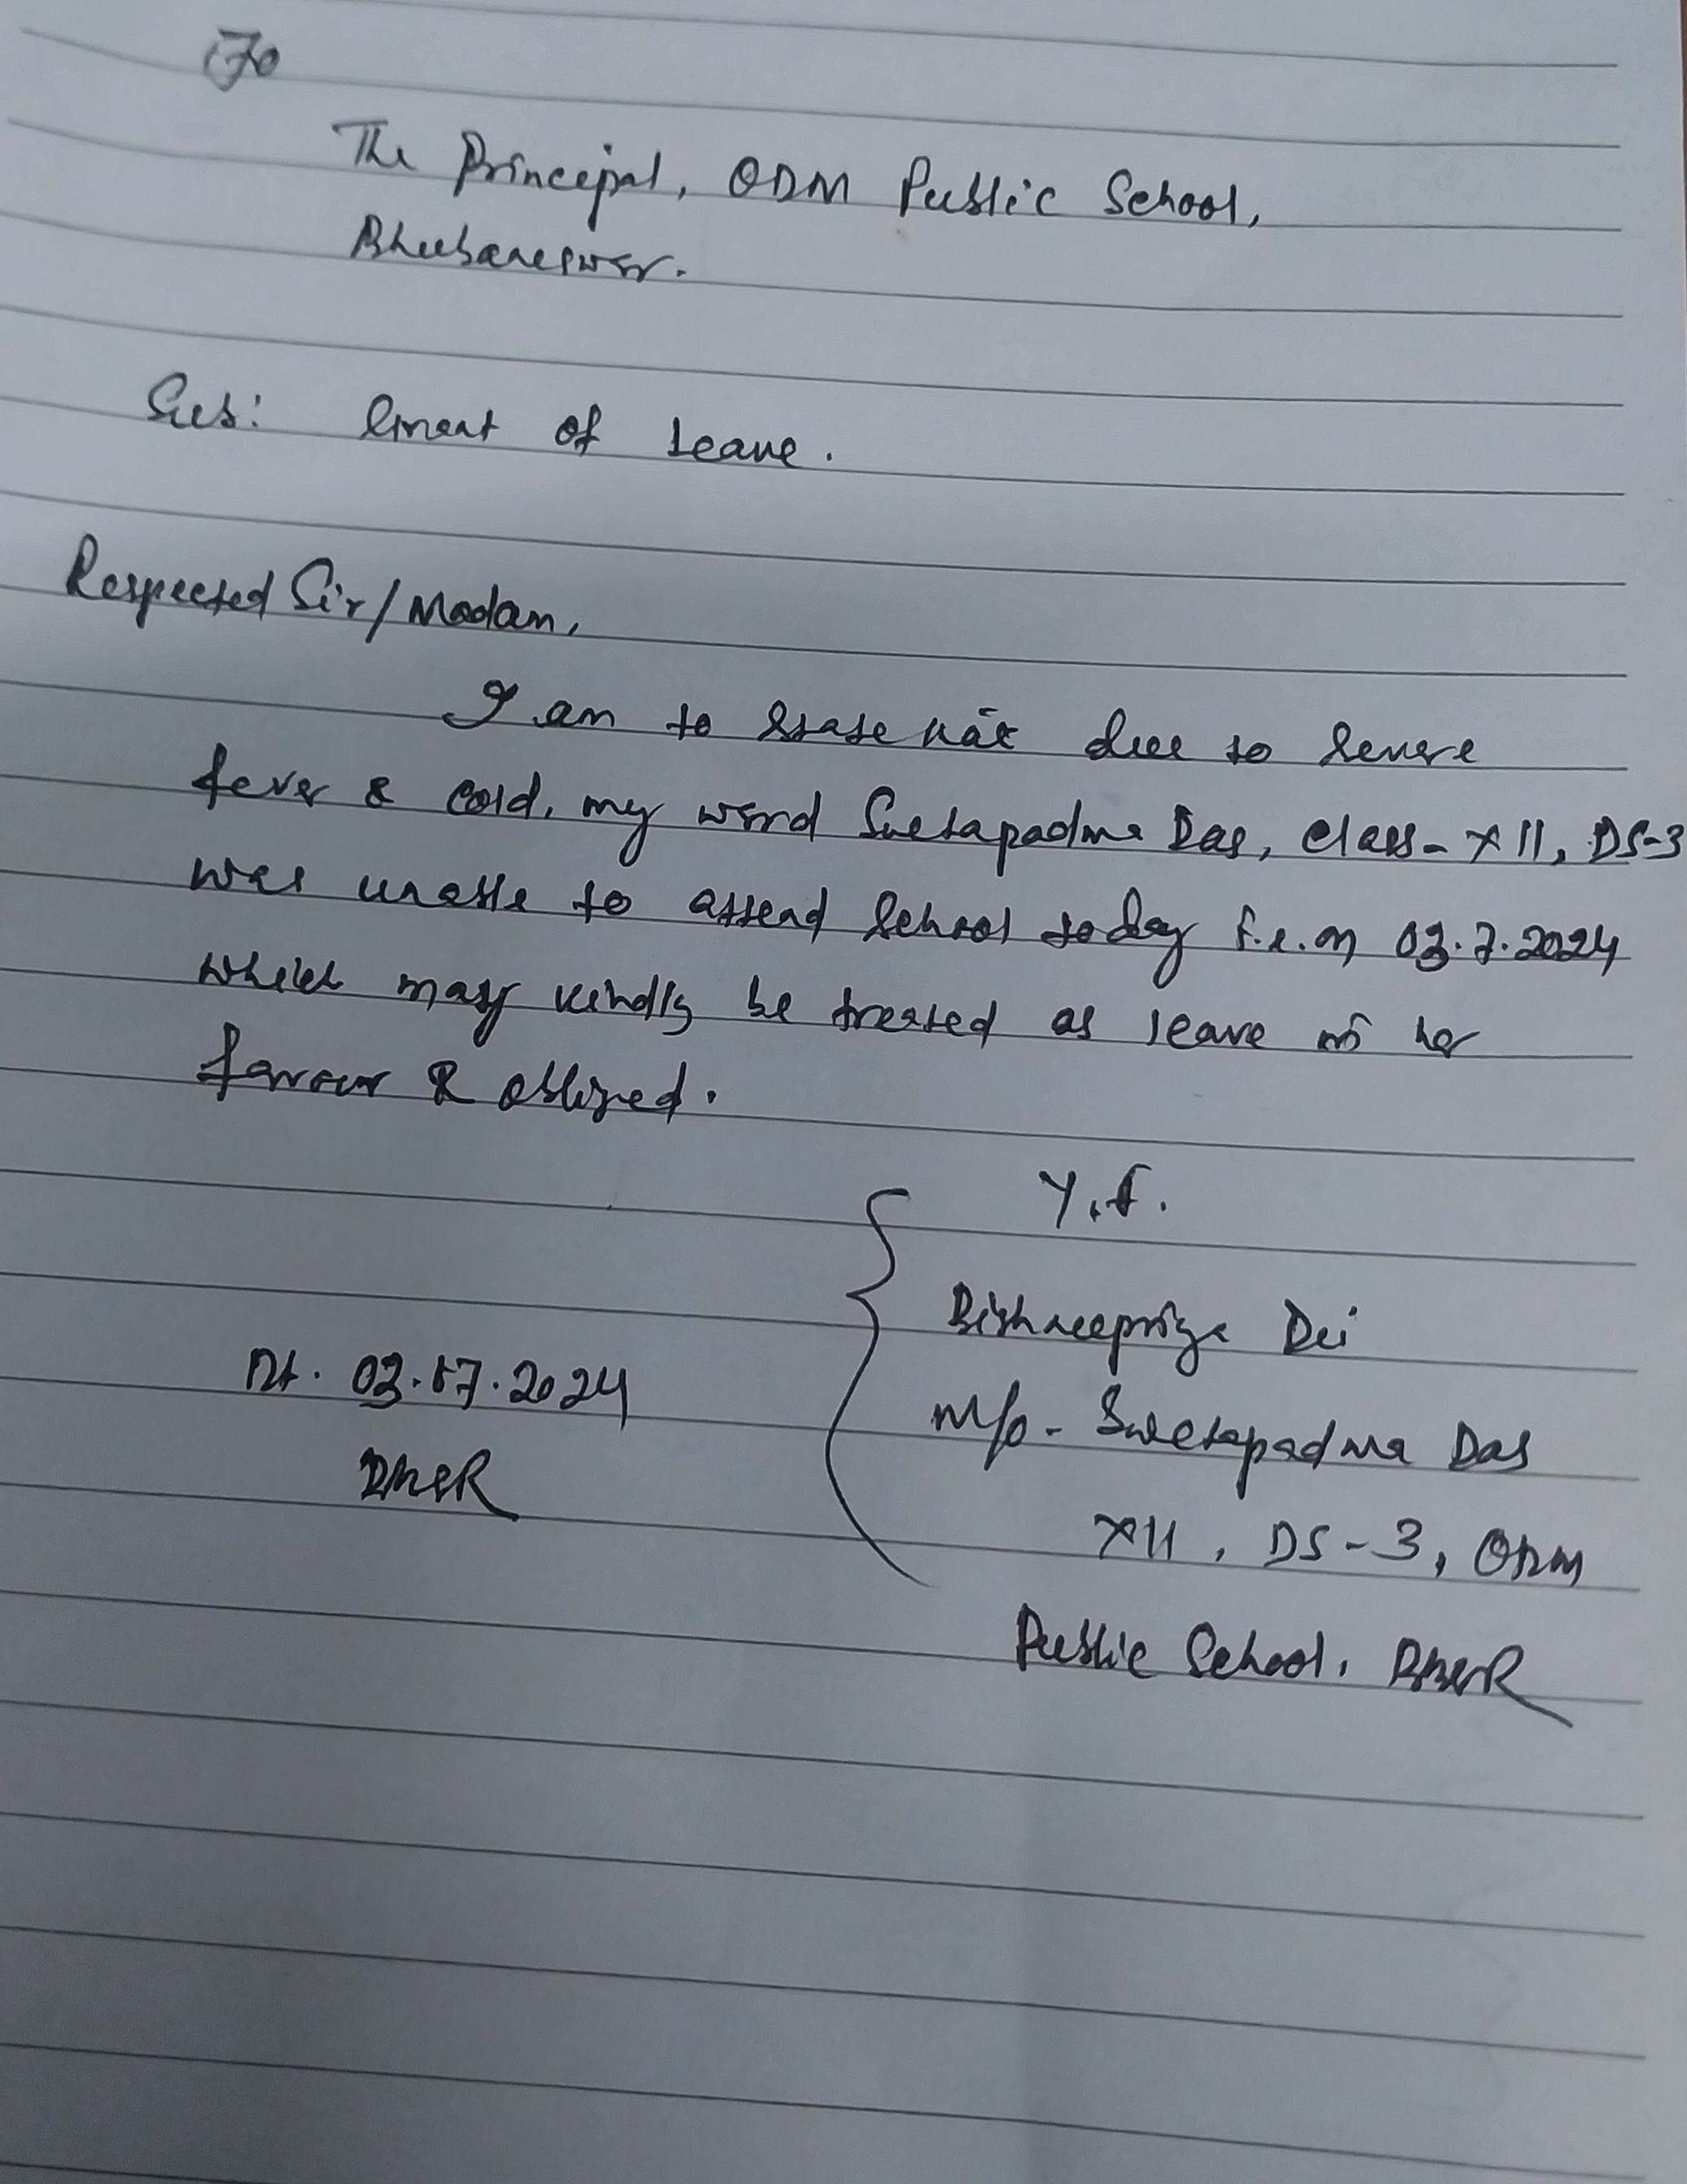 To
The Principal, ODM Public School,
Bhubaneswar.
Sub: Grant of Leave.
Respected Sir/Madam,
I am to state that due to severe
fever & cold, my word Swetapadma Das, Class-XII, DS-3
was unable to attend School today i.e. on 03.7.2024
which may kindly be treated as leave in her
favour & obliged.
Y.f.
Bishnupriya Dei
M/o- Swetapadma Das
XII, DS-3, ODM
Public School, BBSR
Dt. 03.07.2024
BBSR